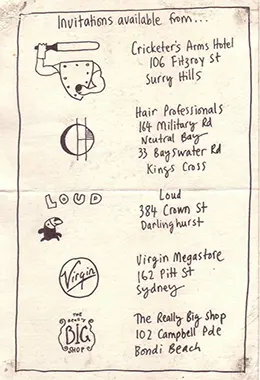 Invitations available from...
Cricketer's Arms Hotel
106 Fitzroy St
Surry Hills
Hair Professionals
164 Military Rd
Neutral Bay
33 Bayswater Rd
Kings Cross
LOUD
Loud
384 Crown St
Darlinghurst
Virgin
Virgin Megastore
162 Pitt St
Sydney
THE
REALLY
BIG
SHOP
The Really Big shop
102 Campbell Pde
Bondi Beach